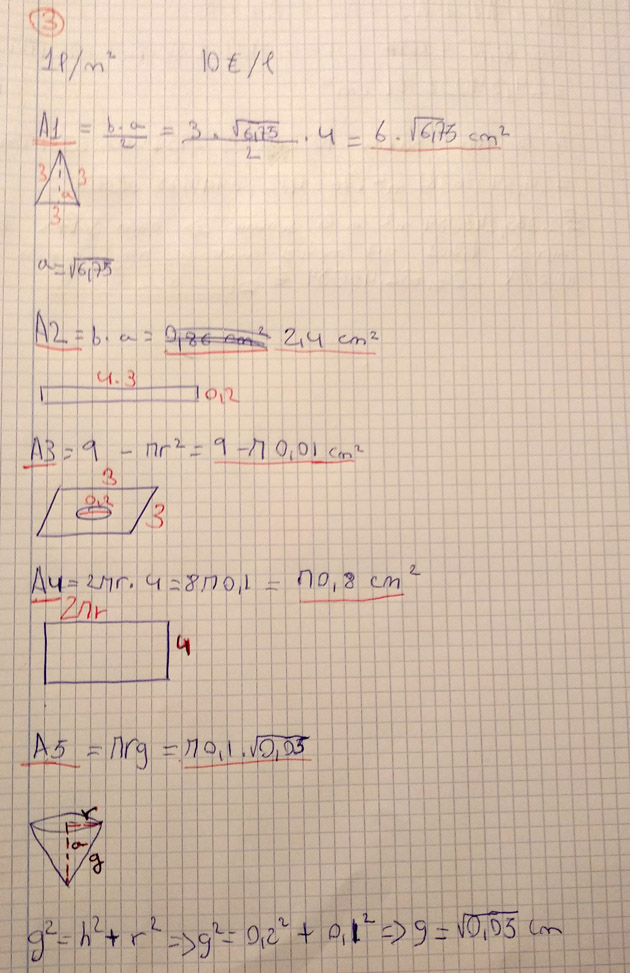 3
1l/m² 10€/l
A1 = b·a/2 = 3·√6,75/2 · 4 = 6·√6,75 cm²
3 3
a
3
a=√6,75
A2 = b·a = 2,4 cm²
4.3
0,2
A3 = 9 - πr² = 9-π0,01 cm²
3
0,2
3
A4 = 2πr·4 = 8π0,1 = π0,8 cm²
2πr
4
A5 = πrg = π0,1·√0,05
r
a
g
g² = h² + r² => g² = 0,2² + 0,1² => g = √0,05 cm